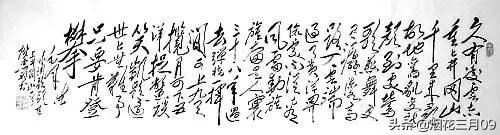 久有凌云志
重上井冈山
千里来寻
故地旧貌变新
颜到处莺
歌燕舞更有
潺潺流水高
路入云端
过了黄洋界
险处不须看
风雷动旌
旗奋是人寰
三十八年过
去弹指一挥
间可上九天
揽月可下五
洋捉鳖谈
笑凯歌还
世上无难事
只要肯登
攀
头条 @烟花三月09